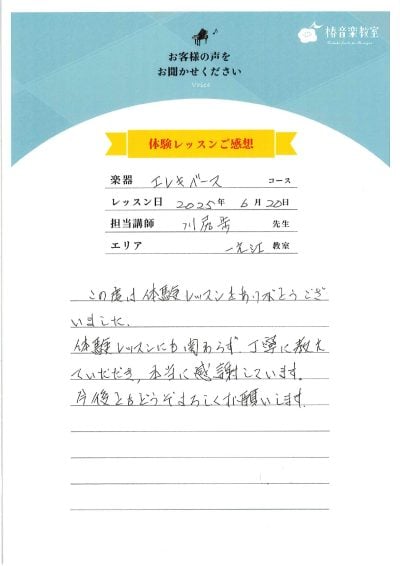 椿音楽教室
お客様の声を
お聞かせください
Voice
体験レッスンご感想
楽器 エレキベース コース
レッスン日 2025年 6月 20日
担当講師 川居 先生
エリア 一之江 教室
この度は体験レッスンをありがとうござ
いました。
体験レッスンにも関わらず、丁寧に教え
ていただき、本当に感謝しています。
今後ともどうぞよろしくお願いします。